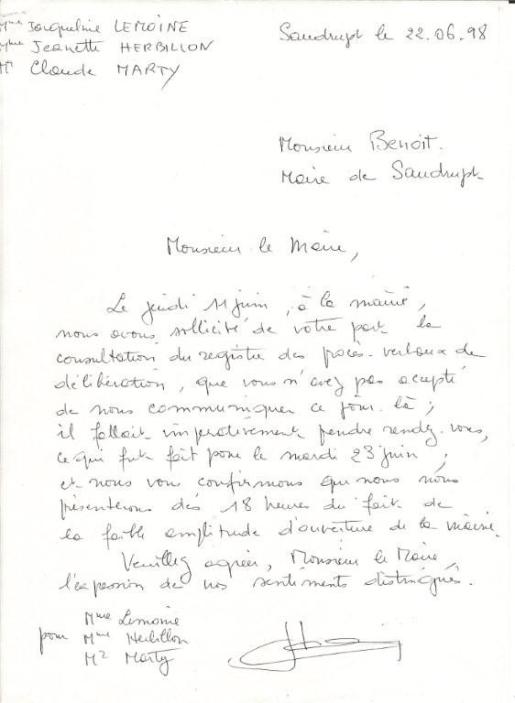 Mme Jacqueline LEMOINE
Mme Jeanette HERBILLON
Mr Claude MARTY
Saudrupt le 22.06.98
Monsieur Benoit.
Maire de Saudrupt
Monsieur le Maire,
Le jeudi 11 juin, à la mairie,
nous avons sollicité de votre part la
consultation du registre des procès-verbaux de
délibération, que vous n'avez pas accepté
de nous communiquer ce jour-là ;
il fallait impérativement prendre rendez-vous,
ce qui fut fait pour le mardi 23 juin ;
et nous vous confirmons que nous nous
présenterons dès 18 heures du fait de
la faible amplitude d'ouverture de la mairie.
Veuillez agréer, Monsieur le Maire,
l'expression de nos sentiments distingués.
pour Mme Lemoine
Mme Herbillon
Mr Marty